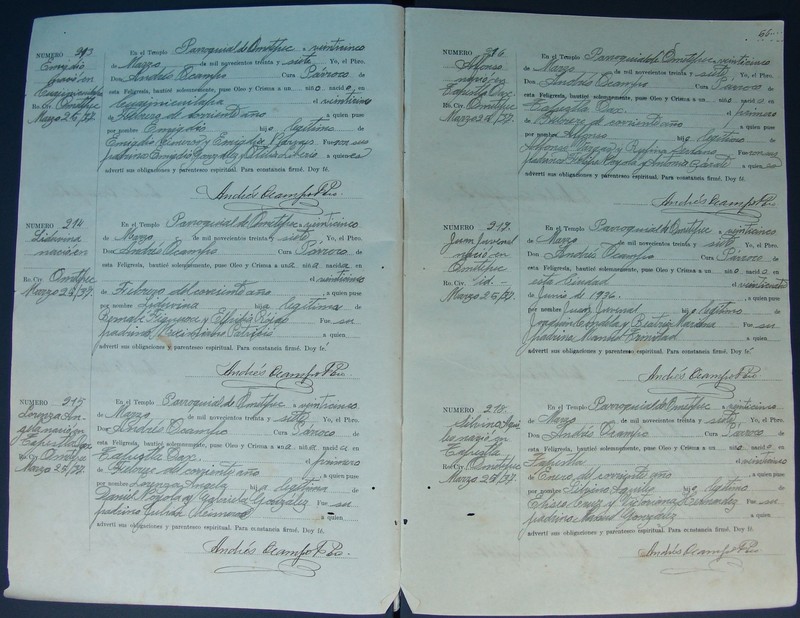 NUMERO 213
Emigdio
nació en
Cuajinicuilapa
Ro. Civ. Ometepec
Marzo 25/37.
En el Templo Parroquial de Ometepec a veinticinco
de Marzo de mil novecientos treinta y siete Yo, el Pbro.
Don Andrés Ocampo Cura Párroco de
esta Feligresía, bauticé solemnemente, puse Oleo y Crisma a un niño nacido en
Cuajinicuilapa el veinticinco
de Febrero de corriente año a quien puse
por nombre Emigdio hijo legítimo de
Emigdio Cisneros y Emigdia Fueron sus
padrinos Emigdio González a quienes
advertí sus obligaciones y parentesco espiritual. Para constancia firmé. Doy fé.
Andrés Ocampo Pbro.
NUMERO 214
nació en
Ro. Civ. Ometepec
Marzo 25/37.
En el Templo Parroquial de Ometepec a veinticinco
de Marzo de mil novecientos treinta y siete Yo, el Pbro.
Don Andrés Ocampo Cura Párroco de
esta Feligresía, bauticé solemnemente, puse Oleo y Crisma a una niña nacida en
el veinticinco
de Febrero del corriente año a quien puse
por nombre hija legítima de
Figueroa y Rojas Fue su
padrino a quien
advertí sus obligaciones y parentesco espiritual. Para constancia firmé. Doy fé.
Andrés Ocampo Pbro.
NUMERO 215
Lorenza An-
gela nació en
Tapextla Oax.
Ro. Civ. Ometepec
Marzo 25/37.
En el Templo Parroquial de Ometepec a veinticinco
de Marzo de mil novecientos treinta y siete Yo, el Pbro.
Don Andrés Ocampo Cura Párroco de
esta Feligresía, bauticé solemnemente, puse Oleo y Crisma a una niña nacida en
Tapextla Oax. el primero
de Febrero del corriente año a quien puse
por nombre Lorenza Angela hija legítima de
Daniel Noyola y Gabriela González Fue su
padrino a quien
advertí sus obligaciones y parentesco espiritual. Para constancia firmé. Doy fé.
Andrés Ocampo Pbro.
65
NUMERO 216
Alfonso
nació en
Tapextla Oax.
Ro. Civ. Ometepec
Marzo 25/37.
En el Templo Parroquial de Ometepec a veinticinco
de Marzo de mil novecientos treinta y siete Yo, el Pbro.
Don Andrés Ocampo Cura Párroco de
esta Feligresía, bauticé solemnemente, puse Oleo y Crisma a un niño nacido en
Tapextla Oax. el primero
de Febrero de corriente año a quien puse
por nombre Alfonso hijo legítimo de
Alfonso y Regina Serrano Fueron sus
padrinos Felipe Noyola y Antonia a quien es
advertí sus obligaciones y parentesco espiritual. Para constancia firmé. Doy fé.
Andrés Ocampo Pbro.
NUMERO 217.
Juan Juvenal
nació en
Ometepec
Ro. Civ. id.
Marzo 25/37.
En el Templo Parroquial de Ometepec a veinticinco
de Marzo de mil novecientos treinta y siete Yo, el Pbro.
Don Andrés Ocampo Cura Párroco de
esta Feligresía, bauticé solemnemente, puse Oleo y Crisma a un niño nacido en
esta Ciudad el veinticuatro
de Junio de 1936. a quien puse
por nombre Juan Juvenal hijo legítimo de
y Beatriz Mariana Fue su
padrino a quien
advertí sus obligaciones y parentesco espiritual. Para constancia firmé. Doy fé.
Andrés Ocampo Pbro.
NUMERO 218.
nació en
Tapextla
Ro. Civ. Ometepec
Marzo 25/37.
En el Templo Parroquial de Ometepec a veinticinco
de Marzo de mil novecientos treinta y siete Yo, el Pbro.
Don Andrés Ocampo Cura Párroco de
esta Feligresía, bauticé solemnemente, puse Oleo y Crisma a un niño nacido en
Tapextla el veinticinco
de Enero del corriente año a quien puse
por nombre hijo legítimo de
Eliseo Cruz y Hernández Fue su
padrino González a quien
advertí sus obligaciones y parentesco espiritual. Para constancia firmé. Doy fé.
Andrés Ocampo Pbro.